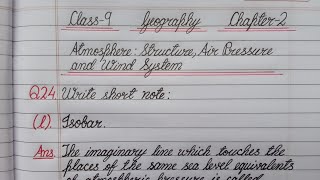 Class-9 Geography Chapter-2
Atmosphere: Structure, Air Pressure
and Wind System
Q24. Write short note:
(l). Isobar.
Ans. The imaginary line which touches the
places of the same sea level equivalents
of atmospheric pressure is called